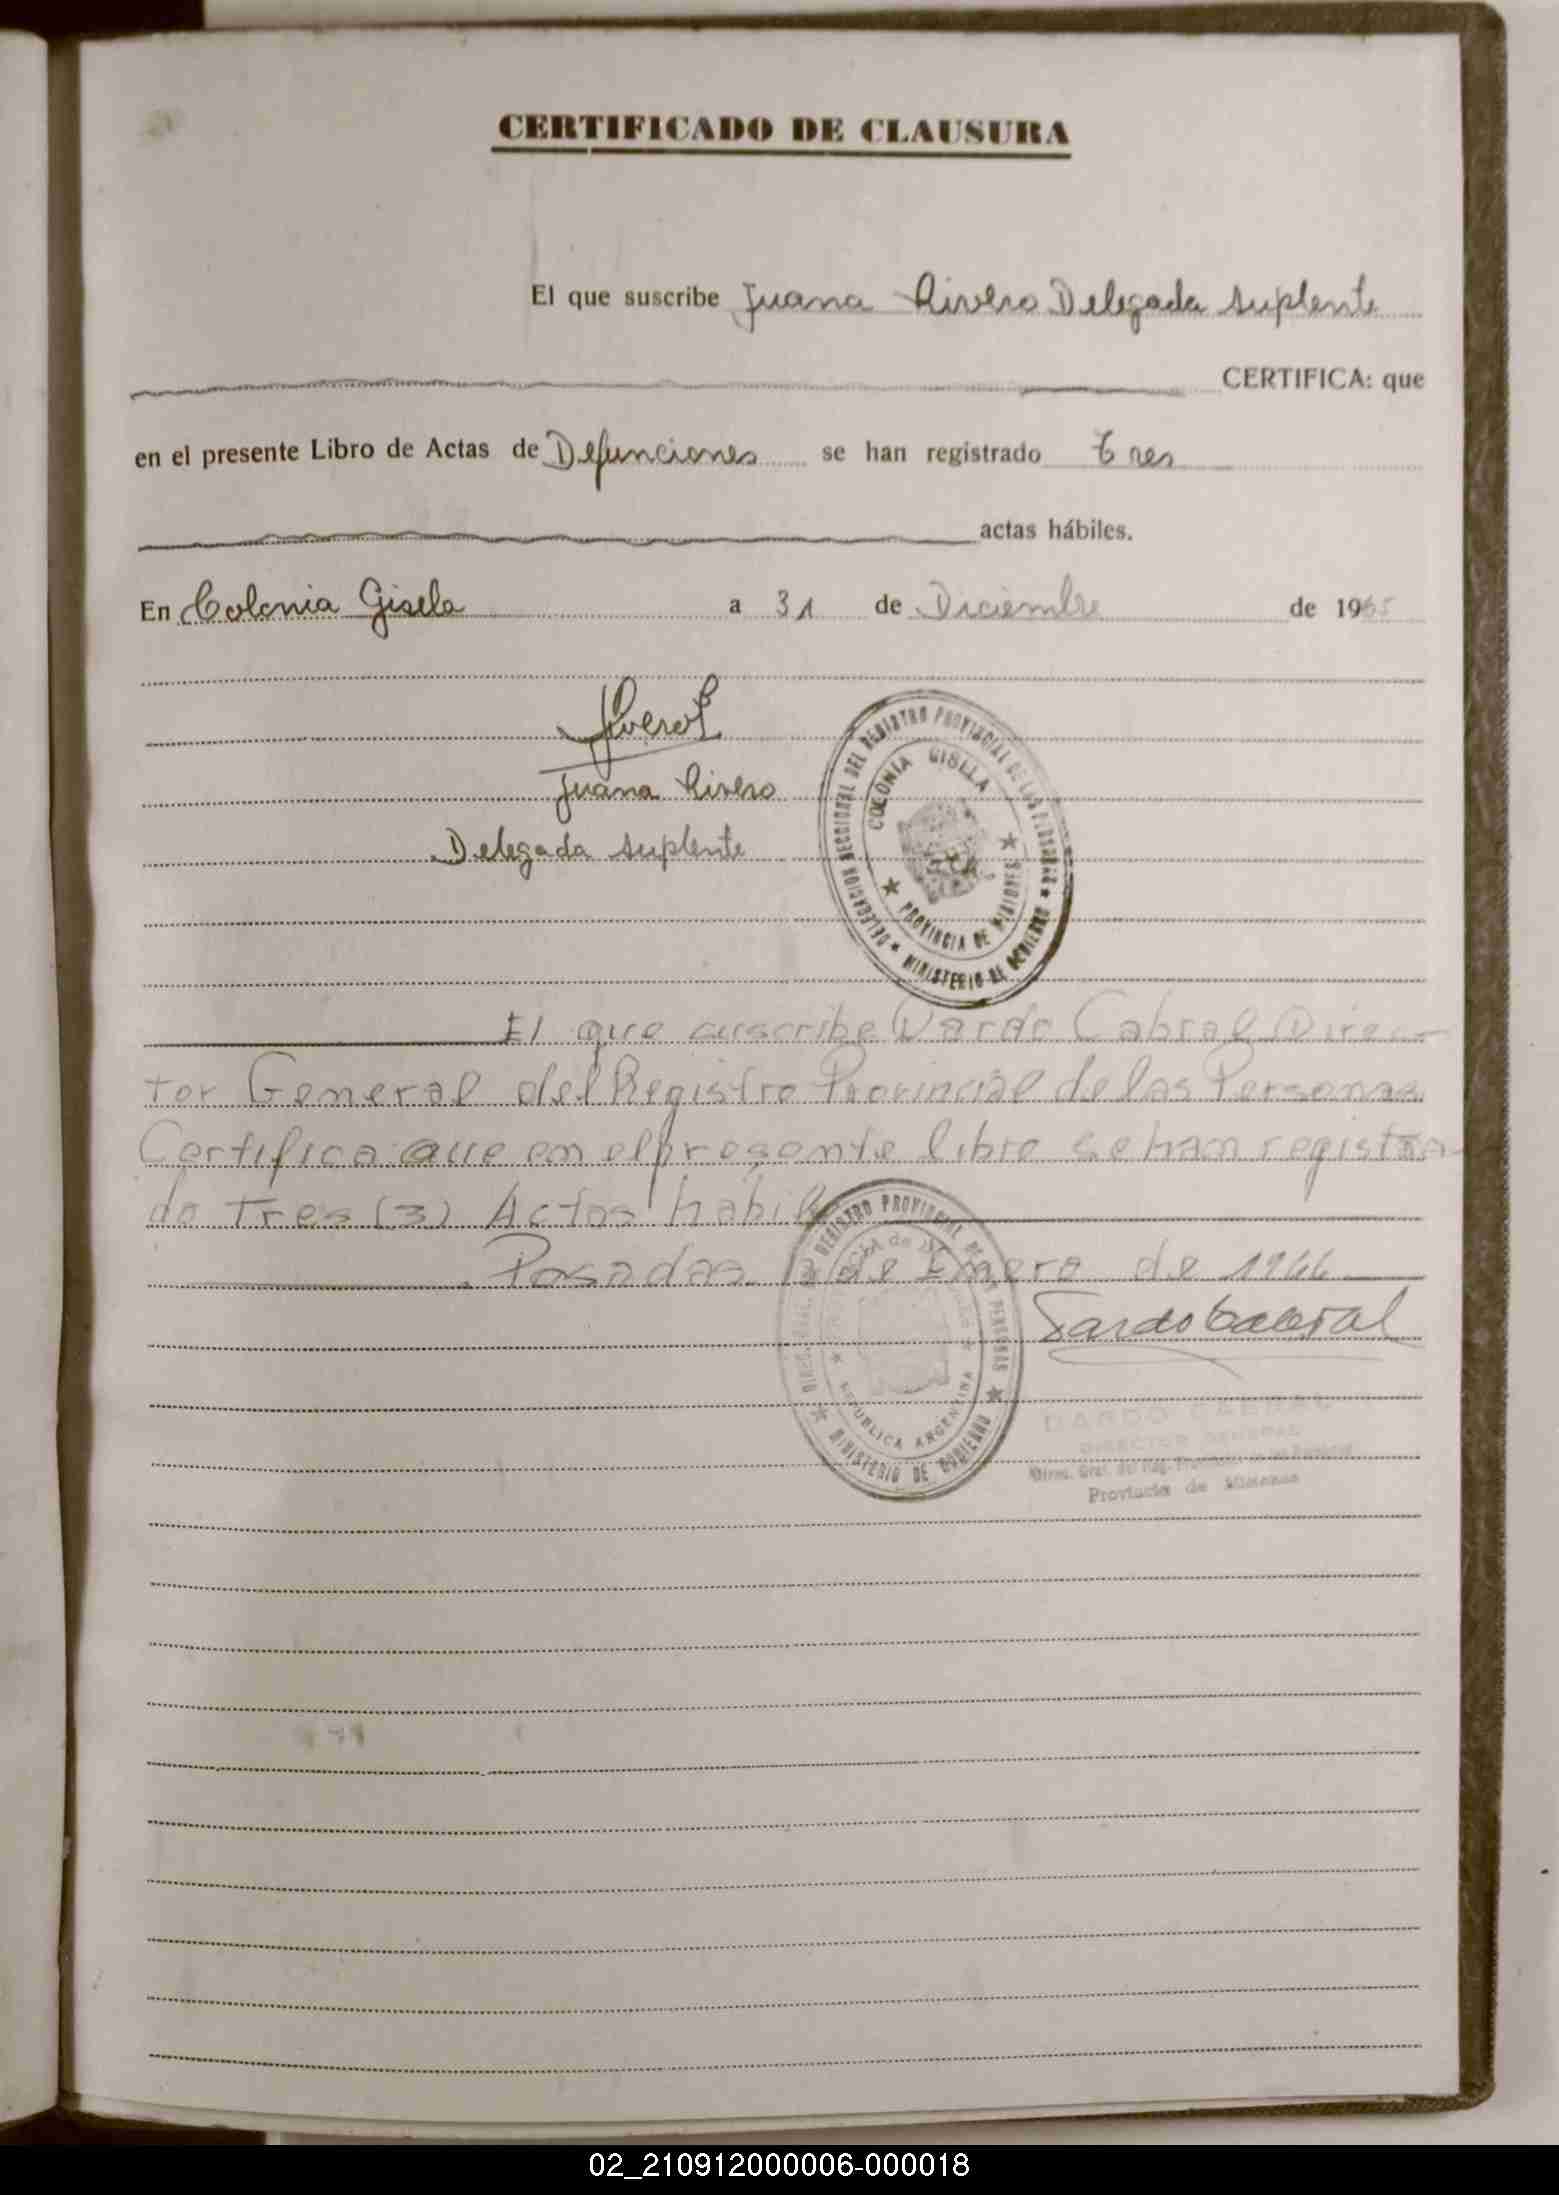 CERTIFICADO DE CLAUSURA
El que suscribe Juana Rivero Delegada suplente
CERTIFICA: que
en el presente Libro de Actas de Defunciones se han registrado tres
actas hábiles.
En Colonia Gisela a 31 de Diciembre de 1965
Juana Rivero
Delegada suplente
DELEGACION SECCIONAL DEL REGISTRO PROVINCIAL DE LAS PERSONAS
MINISTERIO DE GOBIERNO
COLONIA GISELLA
PROVINCIA DE MISIONES
El que suscribe Dardo Cabral Direc-
tor General del Registro Provincial de las Personas
Certifica que en el presente libro se han registra-
do Tres (3) Actas habil
Posadas de Enero de 1966
Dardo Cabral
REGISTRO PROVINCIAL DE LAS PERSONAS
MINISTERIO DE GOBIERNO
REPUBLICA ARGENTINA
DARDO CABRAL
DIRECTOR GENERAL
Direc. Gral. del Reg. Provincial de las Personas
Provincia de Misiones
02_210912000006-000018